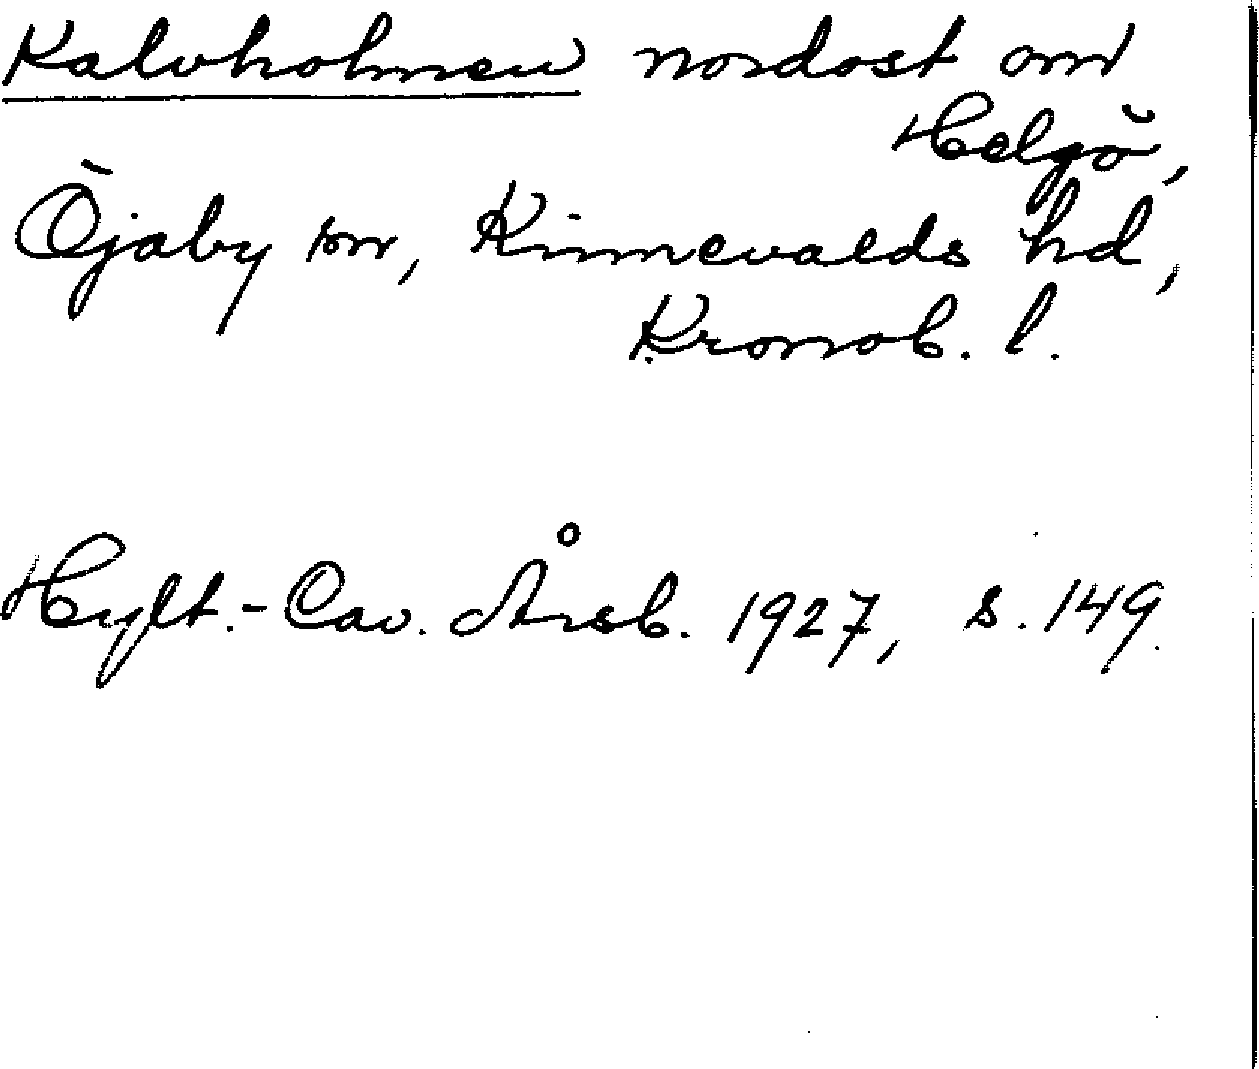 Kalvholmen nordost om
Helgö,
Öjaby sn, Kinnevalds hd,
Kronob. l.
Hylt.-Cav. Årsb. 1927, s. 149.